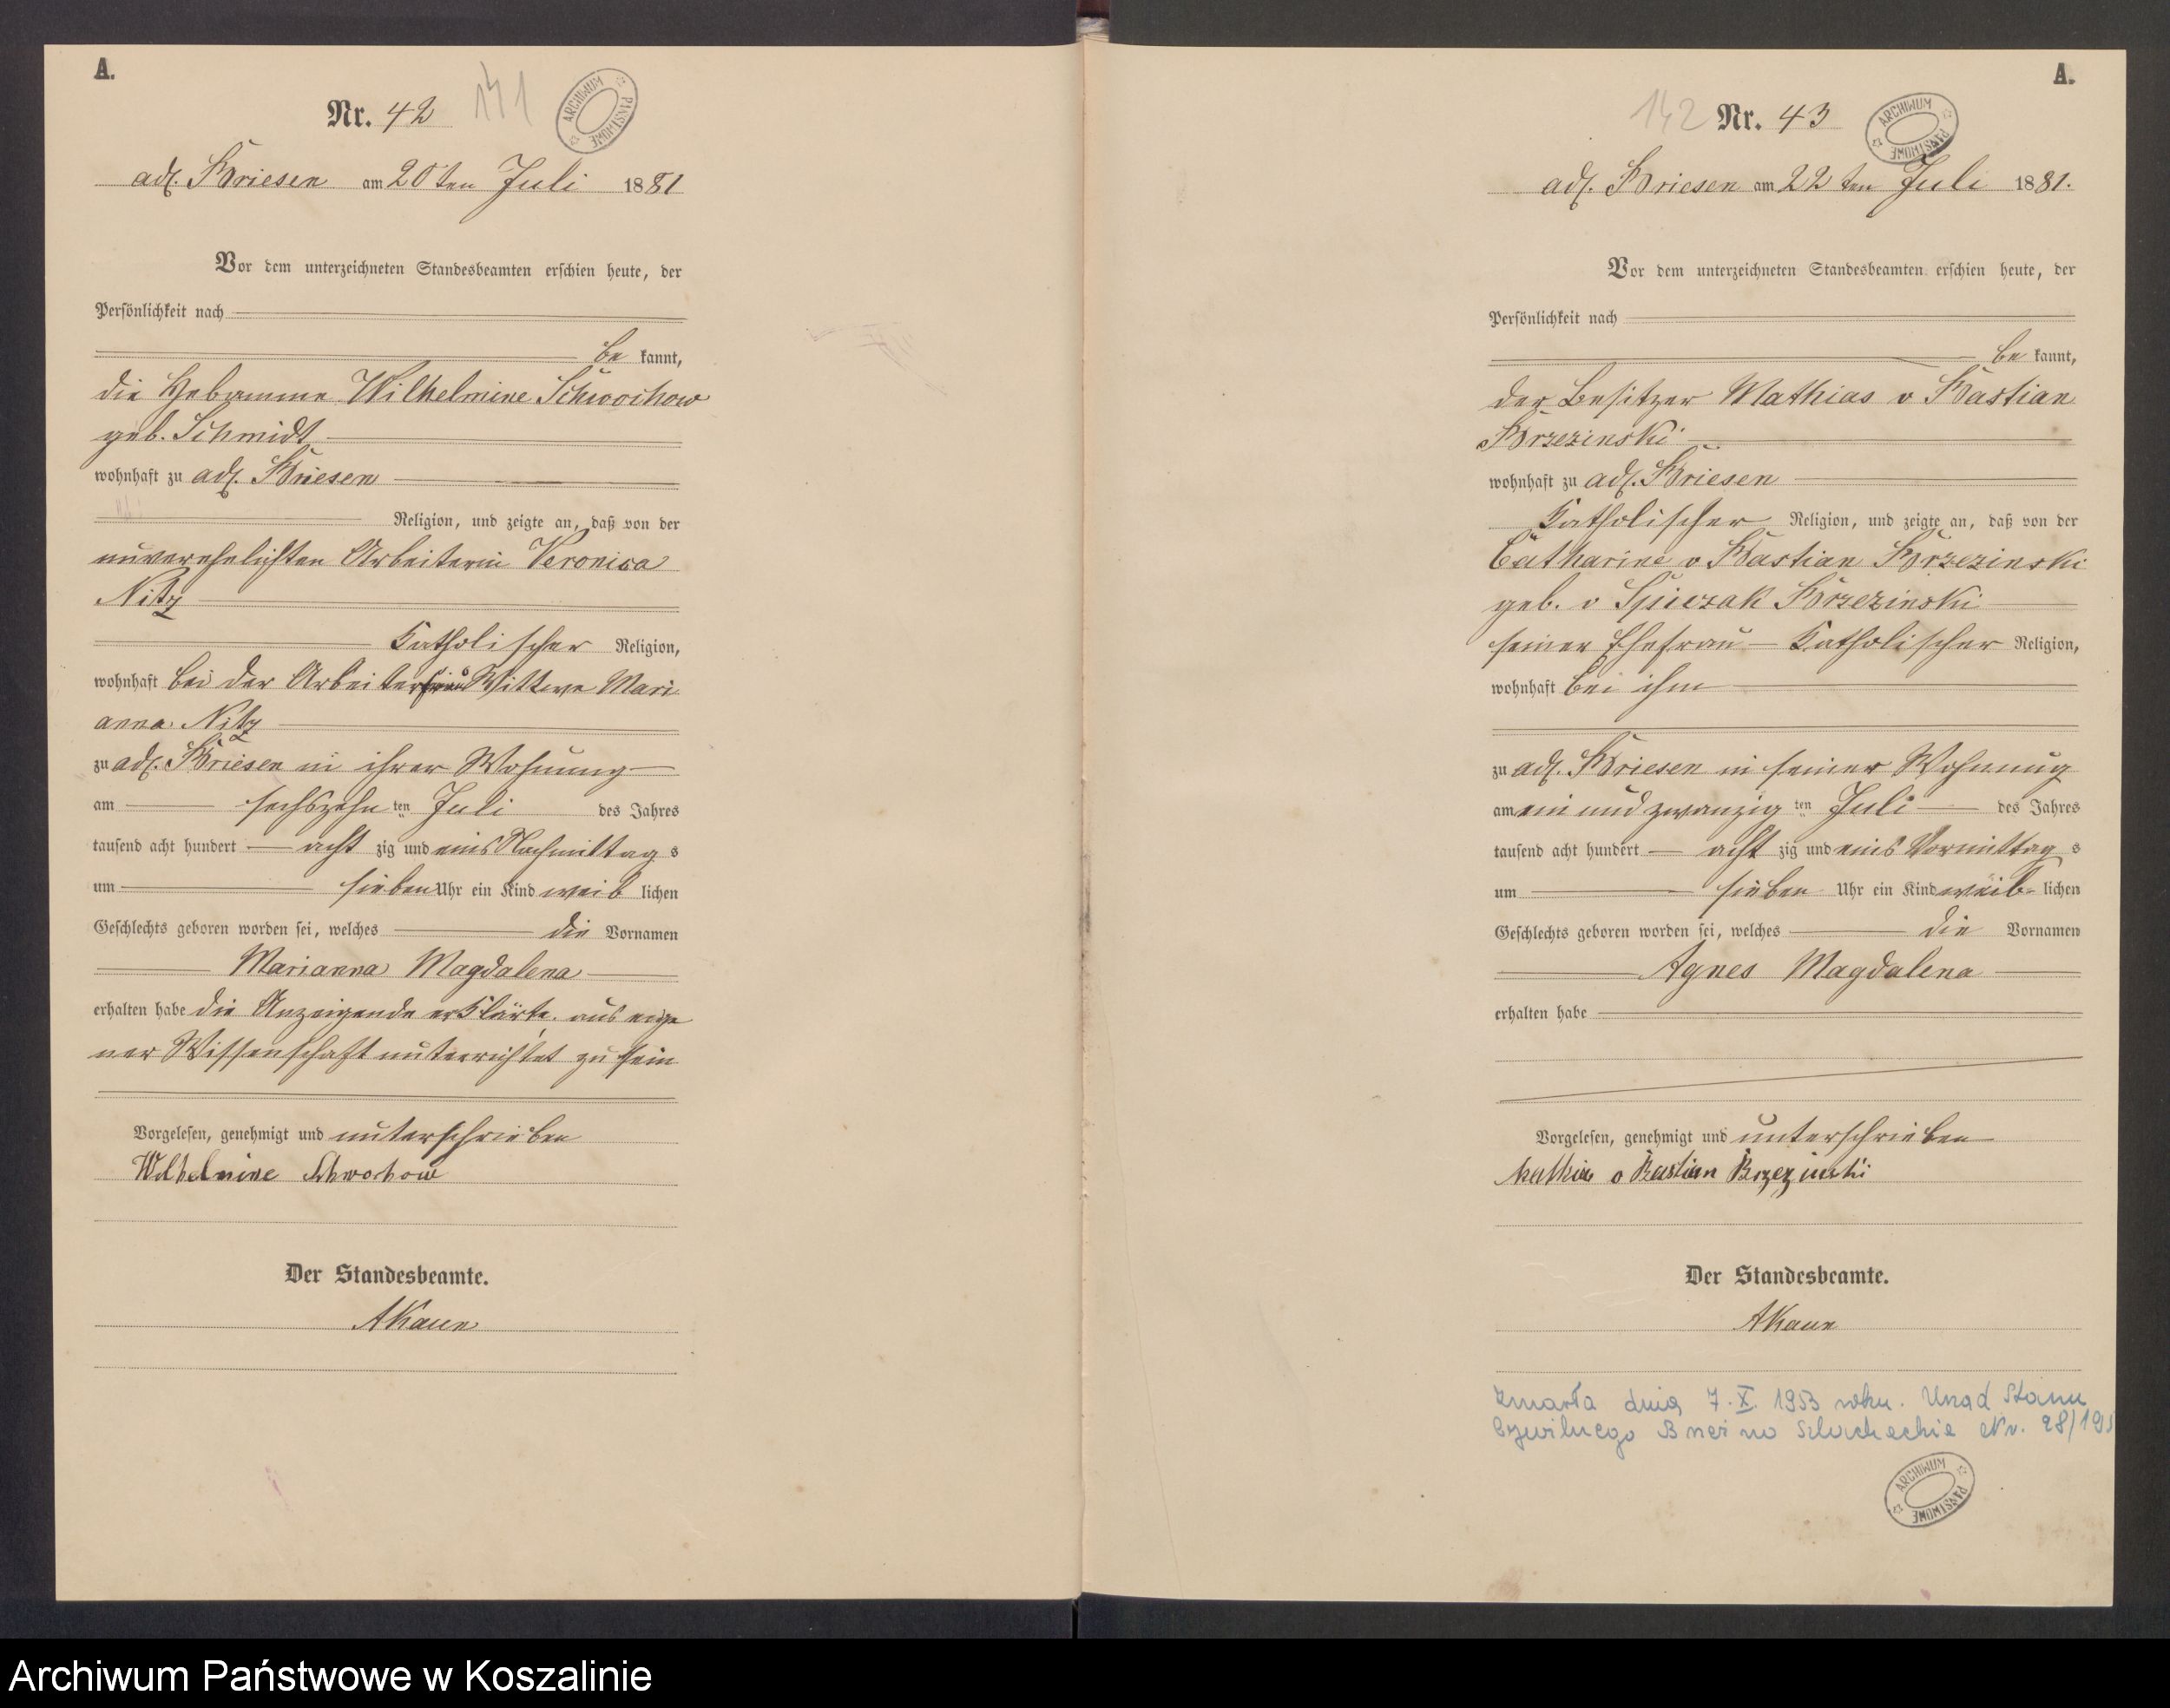 A.
Nr. 42 141
ARCHIWUM PAŃSTWOWE
adl. Briesen am 20ten Juli 1881
Vor dem unterzeichneten Standesbeamten erschien heute, der
Persönlichkeit nach
be kannt,
die Hebamme Wilhelmine Schwochow
geb. Schmidt
wohnhaft zu adl. Briesen
Religion, und zeigte an, daß von der
unverehelichten Arbeiterin Veronica
Nitz
Katholischer Religion,
wohnhaft bei der Arbeiter Wittwe Mari
anna Nitz
zu adl. Briesen in ihrer Wohnung
am sechszehn ten Juli des Jahres
tausend acht hundert acht zig und eins Nachmittag s
um sieben Uhr ein Kind weib lichen
Geschlechts geboren worden sei, welches die Vornamen
Marianna Magdalena
erhalten habe die Anzeigende erklärte, aus eige
ner Wissenschaft unterrichtet zu sein
Vorgelesen, genehmigt und unterschrieben
Wilhelmine Schwochow
Der Standesbeamte.
AKaun
A.
142 Nr. 43
ARCHIWUM PAŃSTWOWE
adl. Briesen am 22 ten Juli 1881.
Vor dem unterzeichneten Standesbeamten erschien heute, der
Persönlichkeit nach
be kannt,
der Besitzer Mathias v Bastian
Brzezinski
wohnhaft zu adl. Briesen
Katholischer Religion, und zeigte an, daß von der
Catharine v Bastian Brzezinski
geb. v Spiczak Brzezinski
seiner Ehefrau Katholischer Religion,
wohnhaft bei ihm
zu adl. Briesen in seiner Wohnung
am ein und zwanzig ten Juli des Jahres
tausend acht hundert acht zig und eins Vormittag s
um sieben Uhr ein Kind weib- lichen
Geschlechts geboren worden sei, welches die Vornamen
Agnes Magdalena
erhalten habe
Vorgelesen, genehmigt und unterschrieben
Mathias v Bastian Brzezinski
Der Standesbeamte.
AKaun
Zmarła dnia 7.X.1953 roku. Urząd Stanu
Cywilnego Brzeźno Szlacheckie Nr. 28/195
ARCHIWUM PAŃSTWOWE
Archiwum Państwowe w Koszalinie